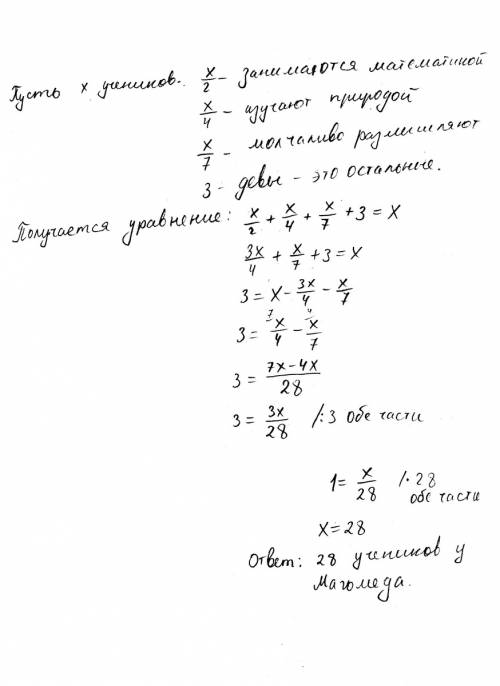 Пусть x учеников. x/2 - занимаются математикой
x/4 - изучают природой
x/7 - молчаливо размышляют
3 - девы - это остальные.
Получается уравнение: x/2 + x/4 + x/7 + 3 = x
3x/4 + x/7 + 3 = x
3 = x - 3x/4 - x/7
3 = ⁷x/4 - ⁴x/7
3 = 7x-4x/28
3 = 3x/28 /:3 обе части
1 = x/28 /·28
обе части
x = 28
Ответ: 28 учеников у
Магомеда.